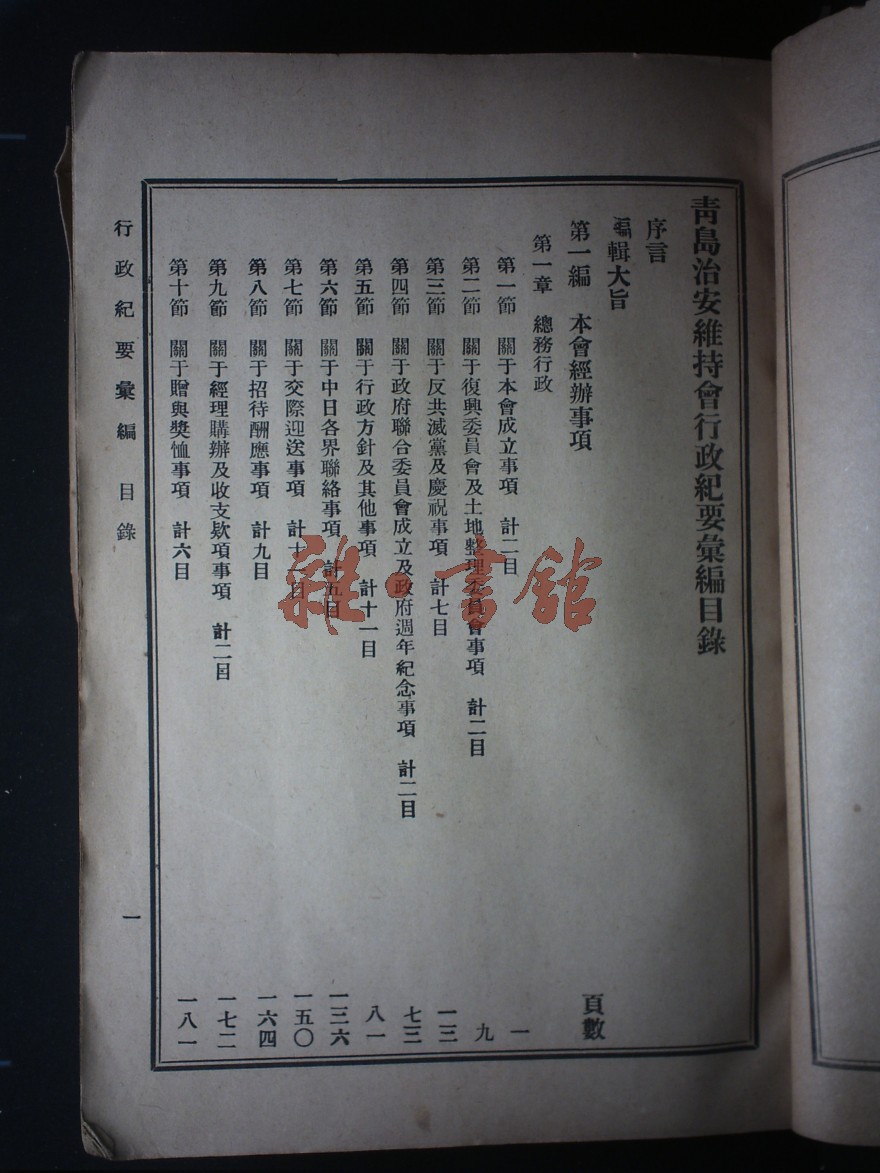 青島治安維持會行政紀要彙編目錄
序言
編輯大旨
第一編　本會經辦事項　頁數
第一章　總務行政
第一節　關于本會成立事項　計二目　一
第二節　關于復興委員會及土地整理委員會事項　計二目　九
第三節　關于反共滅黨及慶祝事項　計七目　一三
第四節　關于政府聯合委員會成立及政府週年紀念事項　計二目　七三
第五節　關于行政方針及其他事項　計十一目　八一
第六節　關于中日各界聯絡事項　計五目　一三六
第七節　關于交際迎送事項　計十一目　一五〇
第八節　關于招待酬應事項　計九目　一六四
第九節　關于經理購辦及收支欵項事項　計二目　一七二
第十節　關于贈與獎恤事項　計六目　一八一
行政紀要彙編　目錄　一
雜·書館